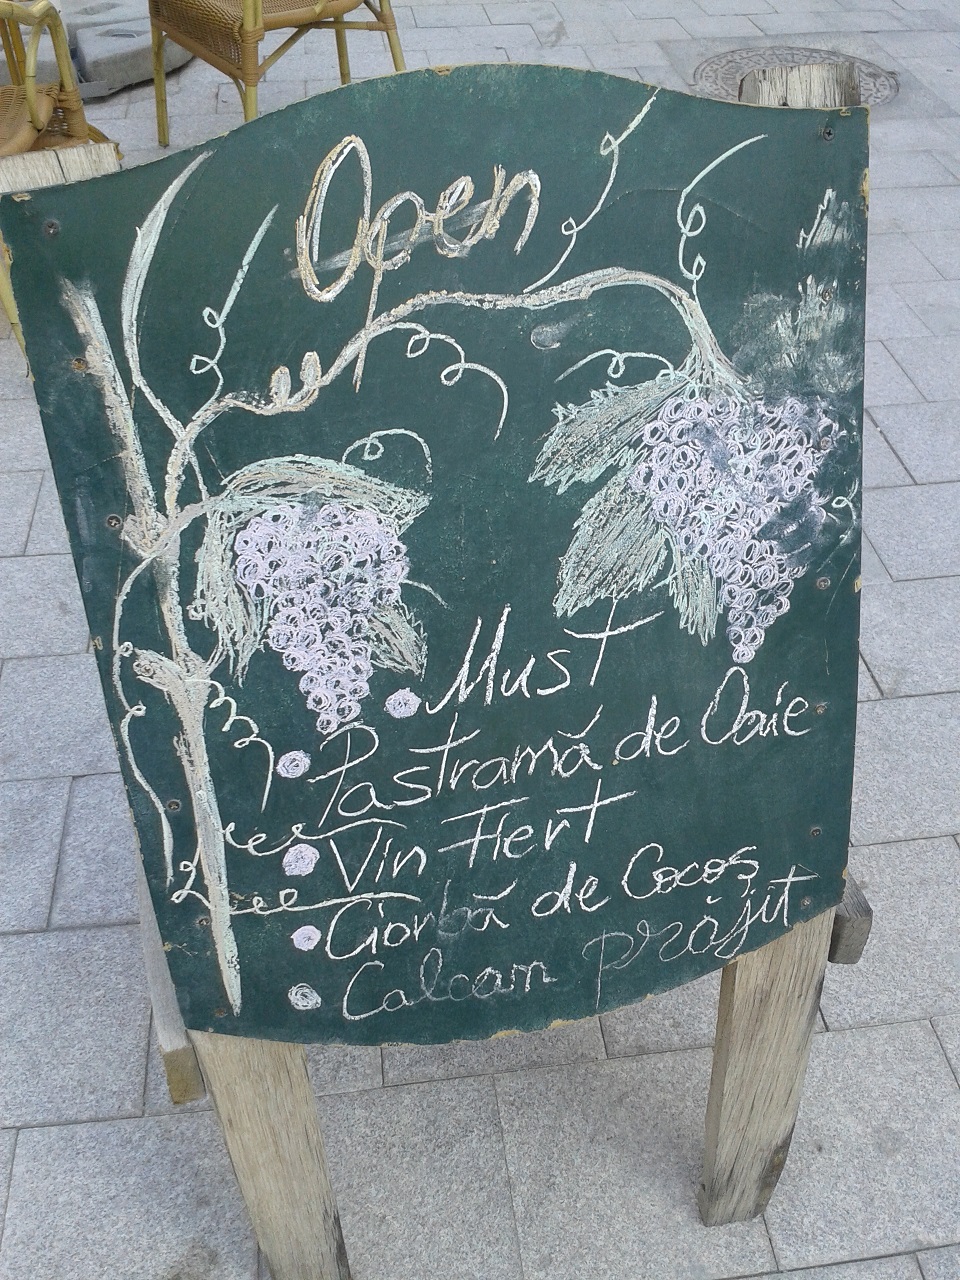 Open
Must
Pastramă de Oaie
Vin Fiert
Ciorbă de Cocoș
Calcan prăjit